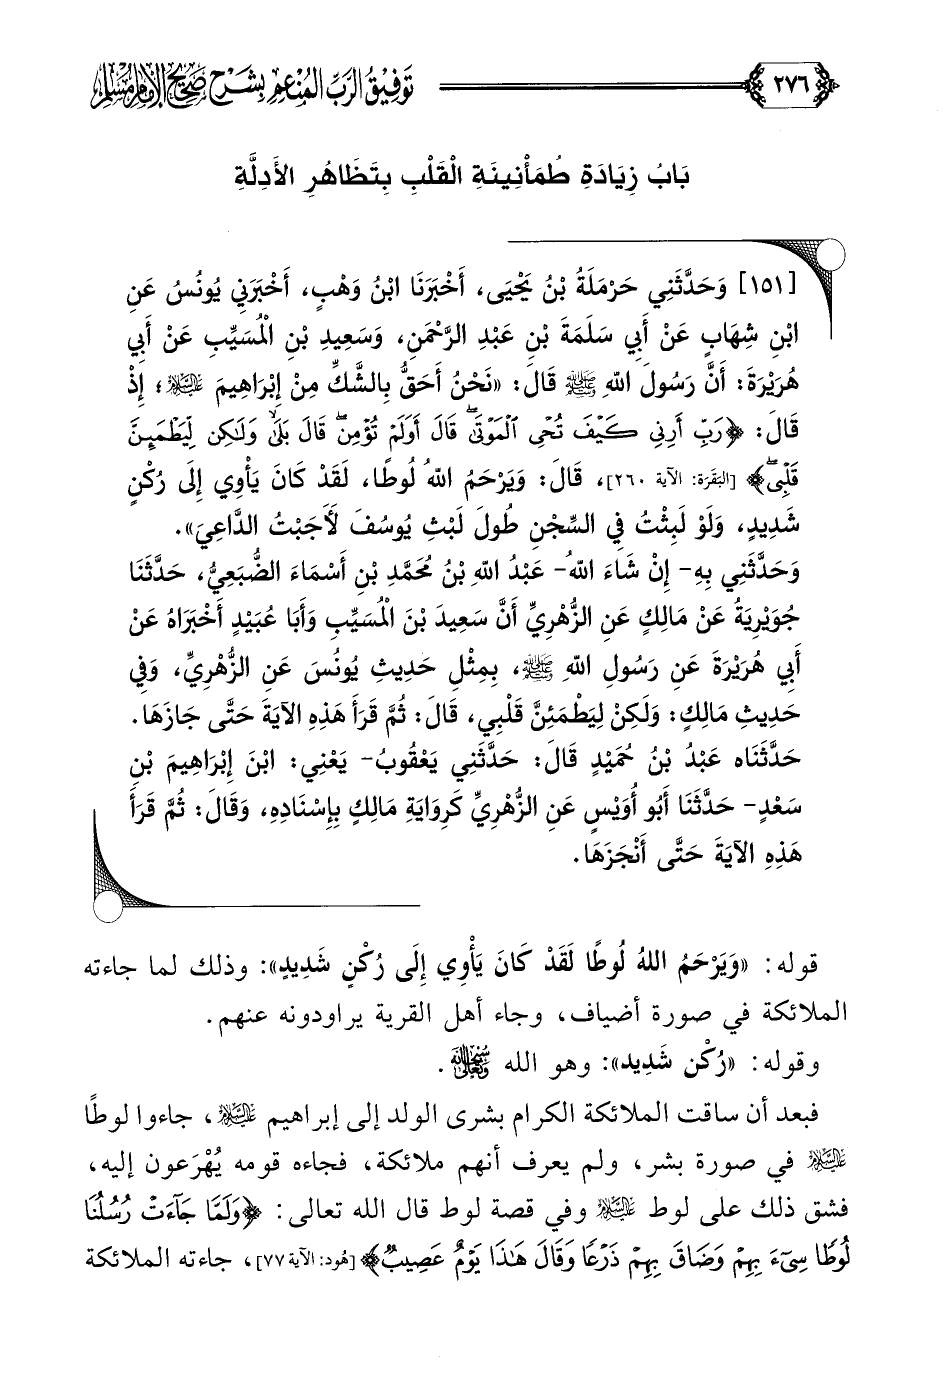 ٢٧٦
توفيق الرب المنعم بشرح صحيح الإمام مسلم
بَابُ زِيَادَةِ طُمَأْنِينَةِ الْقَلْبِ بِتَظَاهُرِ الأَدِلَّةِ
[١٥١] وَحَدَّثَنِي حَرْمَلَةُ بْنُ يَحْيَى، أَخْبَرَنَا ابْنُ وَهْبٍ، أَخْبَرَنِي يُونُسُ عَنِ
ابْنِ شِهَابٍ عَنْ أَبِي سَلَمَةَ بْنِ عَبْدِ الرَّحْمَنِ، وَسَعِيدِ بْنِ الْمُسَيِّبِ عَنْ أَبِي
هُرَيْرَةَ: أَنَّ رَسُولَ اللهِ ﷺ قَالَ: «نَحْنُ أَحَقُّ بِالشَّكِّ مِنْ إِبْرَاهِيمَ عليه السلام؛ إِذْ
قَالَ: ﴿رَبِّ أَرِنِي كَيْفَ تُحْيِ الْمَوْتَىٰۖ قَالَ أَوَلَمْ تُؤْمِنۖ قَالَ بَلَىٰ وَلَٰكِن لِّيَطْمَئِنَّ
قَلْبِيۖ﴾ [البَقَرَة: الآية ٢٦٠]، قَالَ: وَيَرْحَمُ اللهُ لُوطًا، لَقَدْ كَانَ يَأْوِي إِلَى رُكْنٍ
شَدِيدٍ، وَلَوْ لَبِثْتُ فِي السِّجْنِ طُولَ لَبْثِ يُوسُفَ لَأَجَبْتُ الدَّاعِيَ».
وَحَدَّثَنِي بِهِ- إِنْ شَاءَ اللهُ- عَبْدُ اللهِ بْنُ مُحَمَّدِ بْنِ أَسْمَاءَ الضُّبَعِيُّ، حَدَّثَنَا
جُوَيْرِيَةُ عَنْ مَالِكٍ عَنِ الزُّهْرِيِّ أَنَّ سَعِيدَ بْنَ الْمُسَيِّبِ وَأَبَا عُبَيْدٍ أَخْبَرَاهُ عَنْ
أَبِي هُرَيْرَةَ عَنِ رَسُولِ اللهِ ﷺ، بِمِثْلِ حَدِيثِ يُونُسَ عَنِ الزُّهْرِيِّ، وَفِي
حَدِيثِ مَالِكٍ: وَلَكِنْ لِيَطْمَئِنَّ قَلْبِي، قَالَ: ثُمَّ قَرَأَ هَذِهِ الآيَةَ حَتَّى جَازَهَا.
حَدَّثَنَاه عَبْدُ بْنُ حُمَيْدٍ قَالَ: حَدَّثَنِي يَعْقُوبُ- يَعْنِي: ابْنَ إِبْرَاهِيمَ بْنِ
سَعْدٍ- حَدَّثَنَا أَبُو أُوَيْسٍ عَنِ الزُّهْرِيِّ كَرِوَايَةِ مَالِكٍ بِإِسْنَادِهِ، وَقَالَ: ثُمَّ قَرَأَ
هَذِهِ الآيَةَ حَتَّى أَنْجَزَهَا.
قوله: «وَيَرْحَمُ اللهُ لُوطًا لَقَدْ كَانَ يَأْوِي إِلَى رُكْنٍ شَدِيدٍ»: وذلك لما جاءته
الملائكة في صورة أضياف، وجاء أهل القرية يراودونه عنهم.
وقوله: «رُكْن شَدِيد»: وهو الله سبحانه وتعالى.
فبعد أن ساقت الملائكة الكرام بشرى الولد إلى إبراهيم عليه السلام، جاءوا لوطًا
عليه السلام في صورة بشر، ولم يعرف أنهم ملائكة، فجاءه قومه يُهْرَعون إليه،
فشق ذلك على لوط عليه السلام وفي قصة لوط قال الله تعالى: ﴿وَلَمَّا جَآءَتْ رُسُلُنَا
لُوطًا سِيٓءَ بِهِمْ وَضَاقَ بِهِمْ ذَرْعًا وَقَالَ هَٰذَا يَوْمٌ عَصِيبٌ﴾ [هُود: الآية ٧٧]، جاءته الملائكة